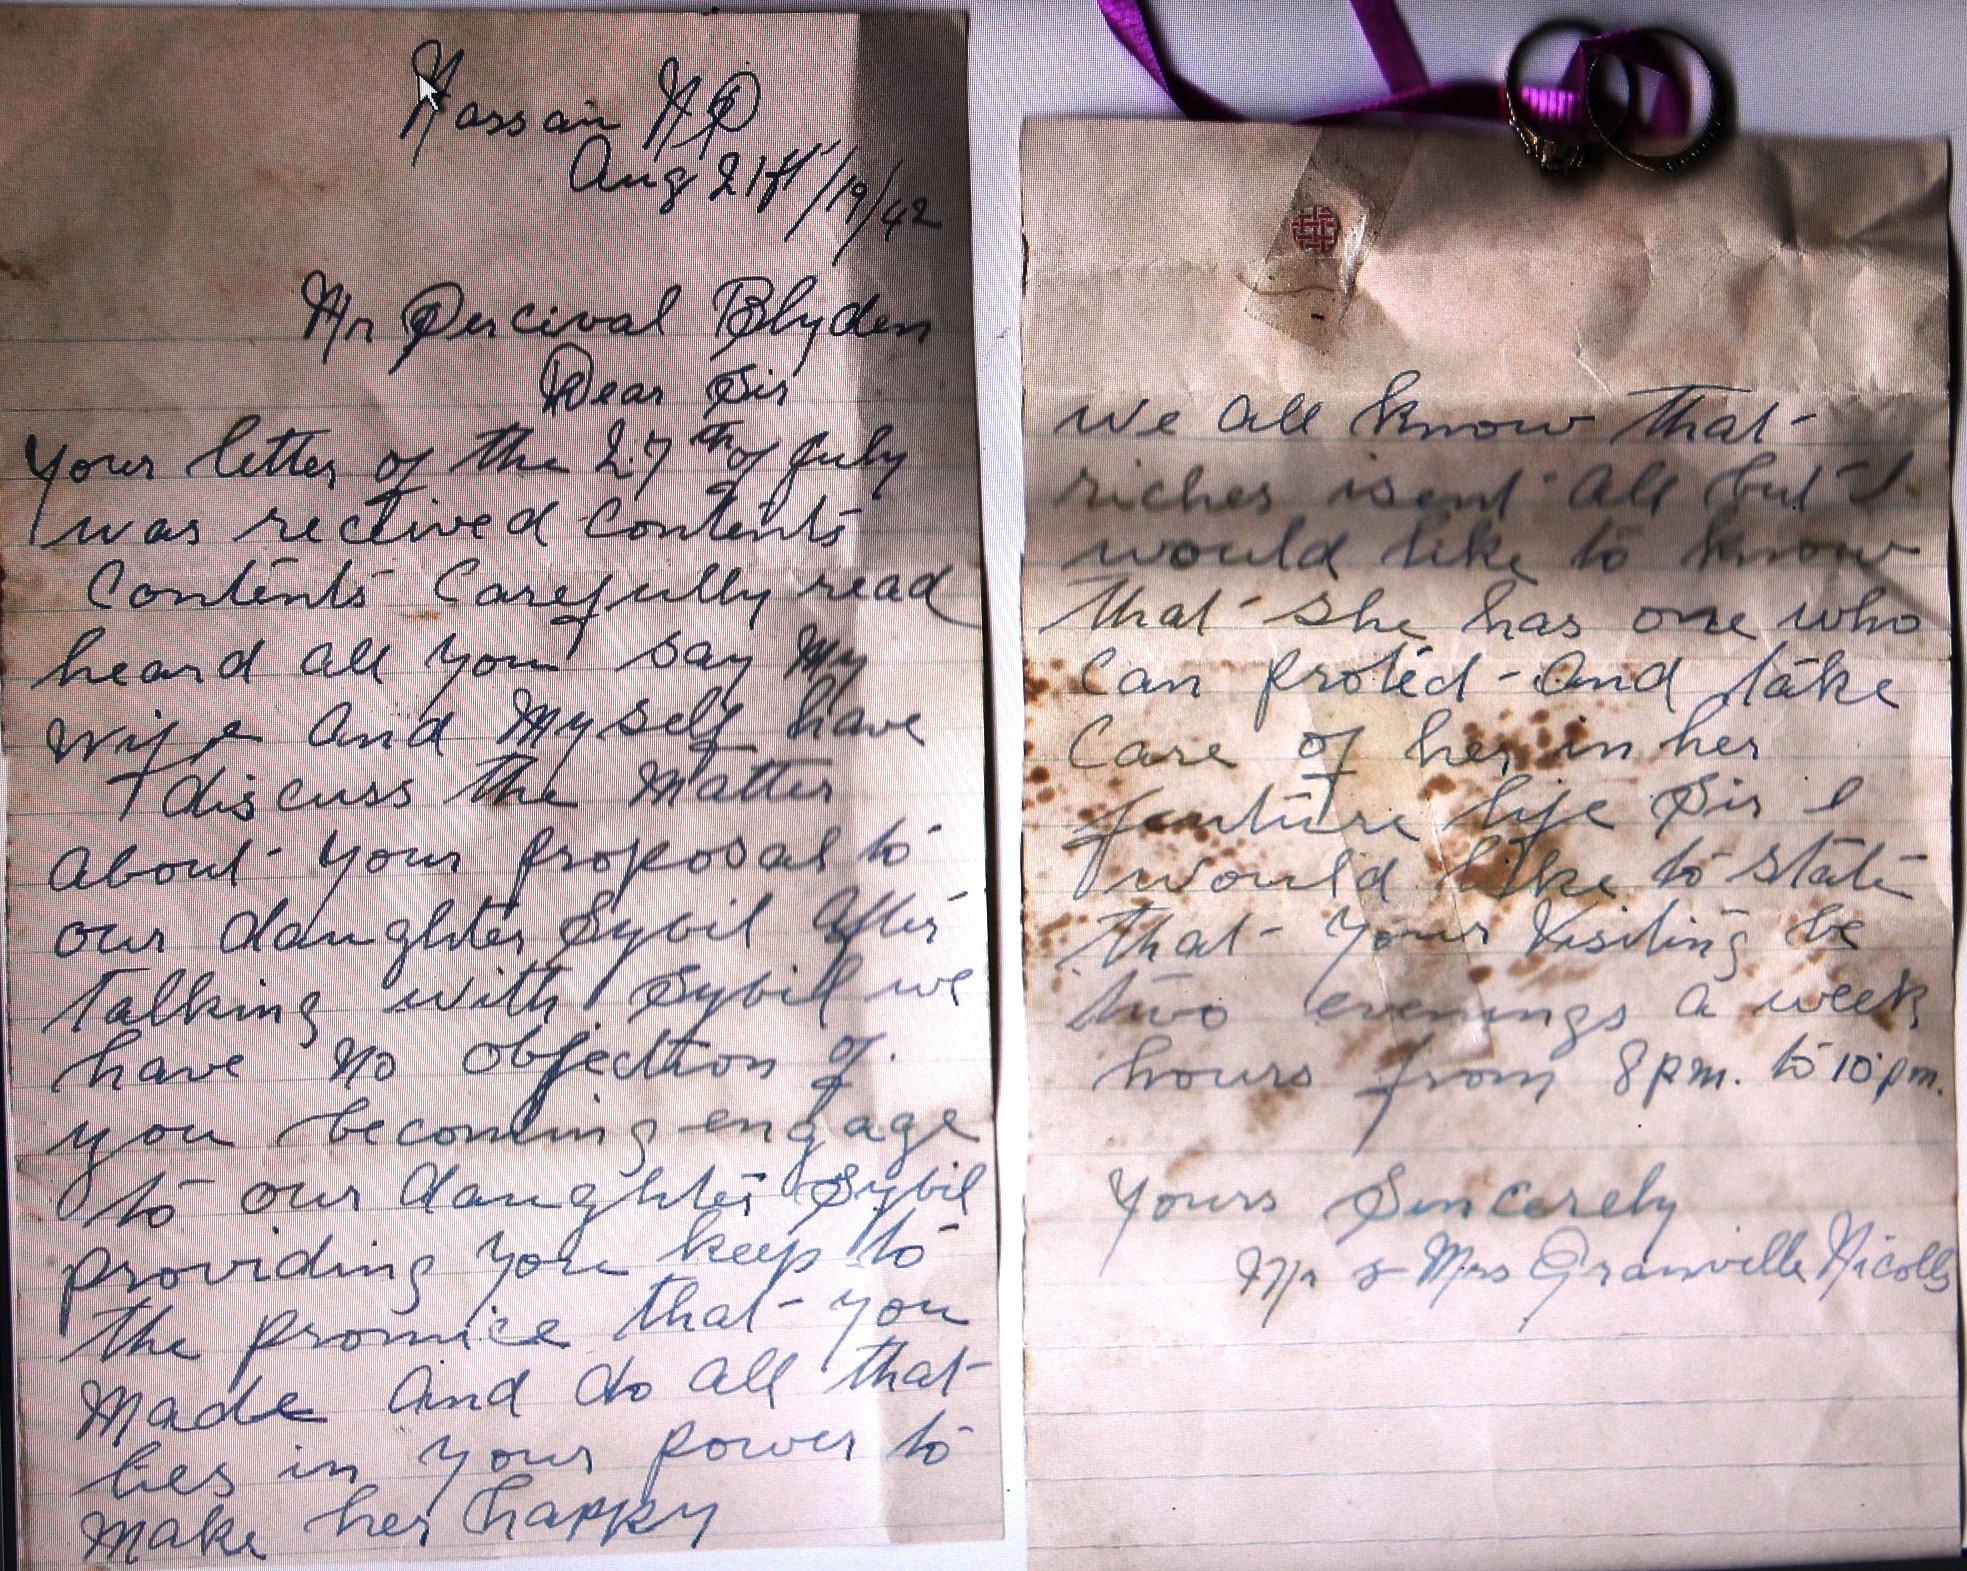 Nassau NP
Aug 21st/19/42
Mr Percival Blyden
Dear Sir
Your letter of the 27th of July
was received Contents
Contents Carefully read
heard all you say My
wife and Myself have
discuss the Matter
about your proposal to
our daughter Sybil after
talking with Sybil we
have no objection of
you becoming engage
to our daughter Sybil
providing you keep to
the promice that you
Made and do all that
lies in your power to
Make her happy
we all know that
riches isent all but I
would like to know
that she has one who
Can protect and take
Care of her in her
future life Sir I
would like to state
that your Visiting be
two evenings a week
hours from 8pm. to 10pm.
Yours Sincerely
Mr & Mrs Granville Nicolls